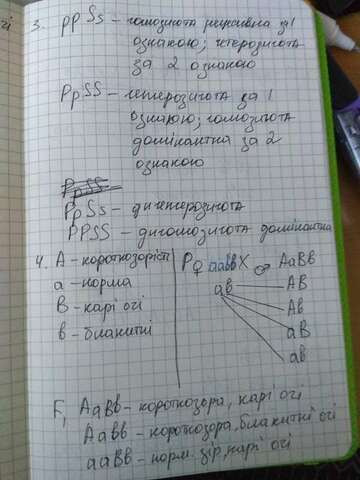 3. ppSs – гомозигота рецесивна за 1
ознакою; гетерозигота
за 2 ознакою
PpSS – гетерозигота за 1
ознакою; гомозигота
домінантна за 2
ознакою
PpSs – дигетерозигота
PPSS – дигомозигота домінантна
4. A – короткозорість
a – норма
B – карі очі
b – блакитні
P ♀ aabb X ♂ AaBb
ab AB
Ab
aB
ab
F1 AaBb – короткозора, карі очі
Aabb – короткозора, блакитні очі
aaBb – норм. зір, карі очі